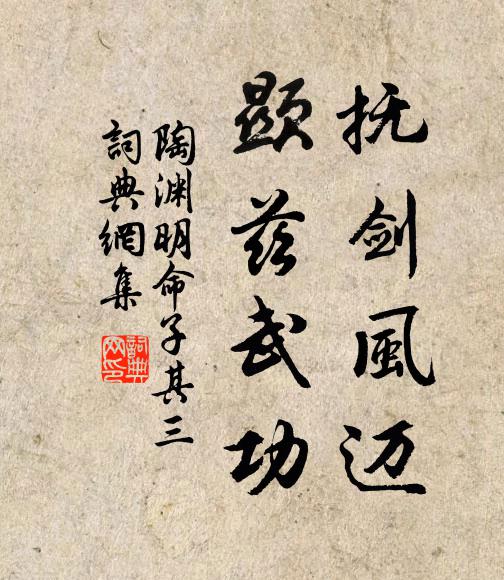 抚剑風迈
顯茲武功
陶渊明命子其三
詞典網集
詞典网印